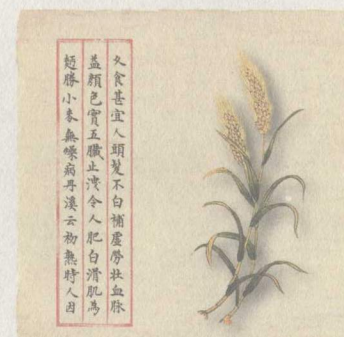 久食甚宜人頭髮不白補虛勞壯血脉
益顏色實五臟止洩令人肥白滑肌為
麪勝小麥無燥病丹溪云初熟時人因